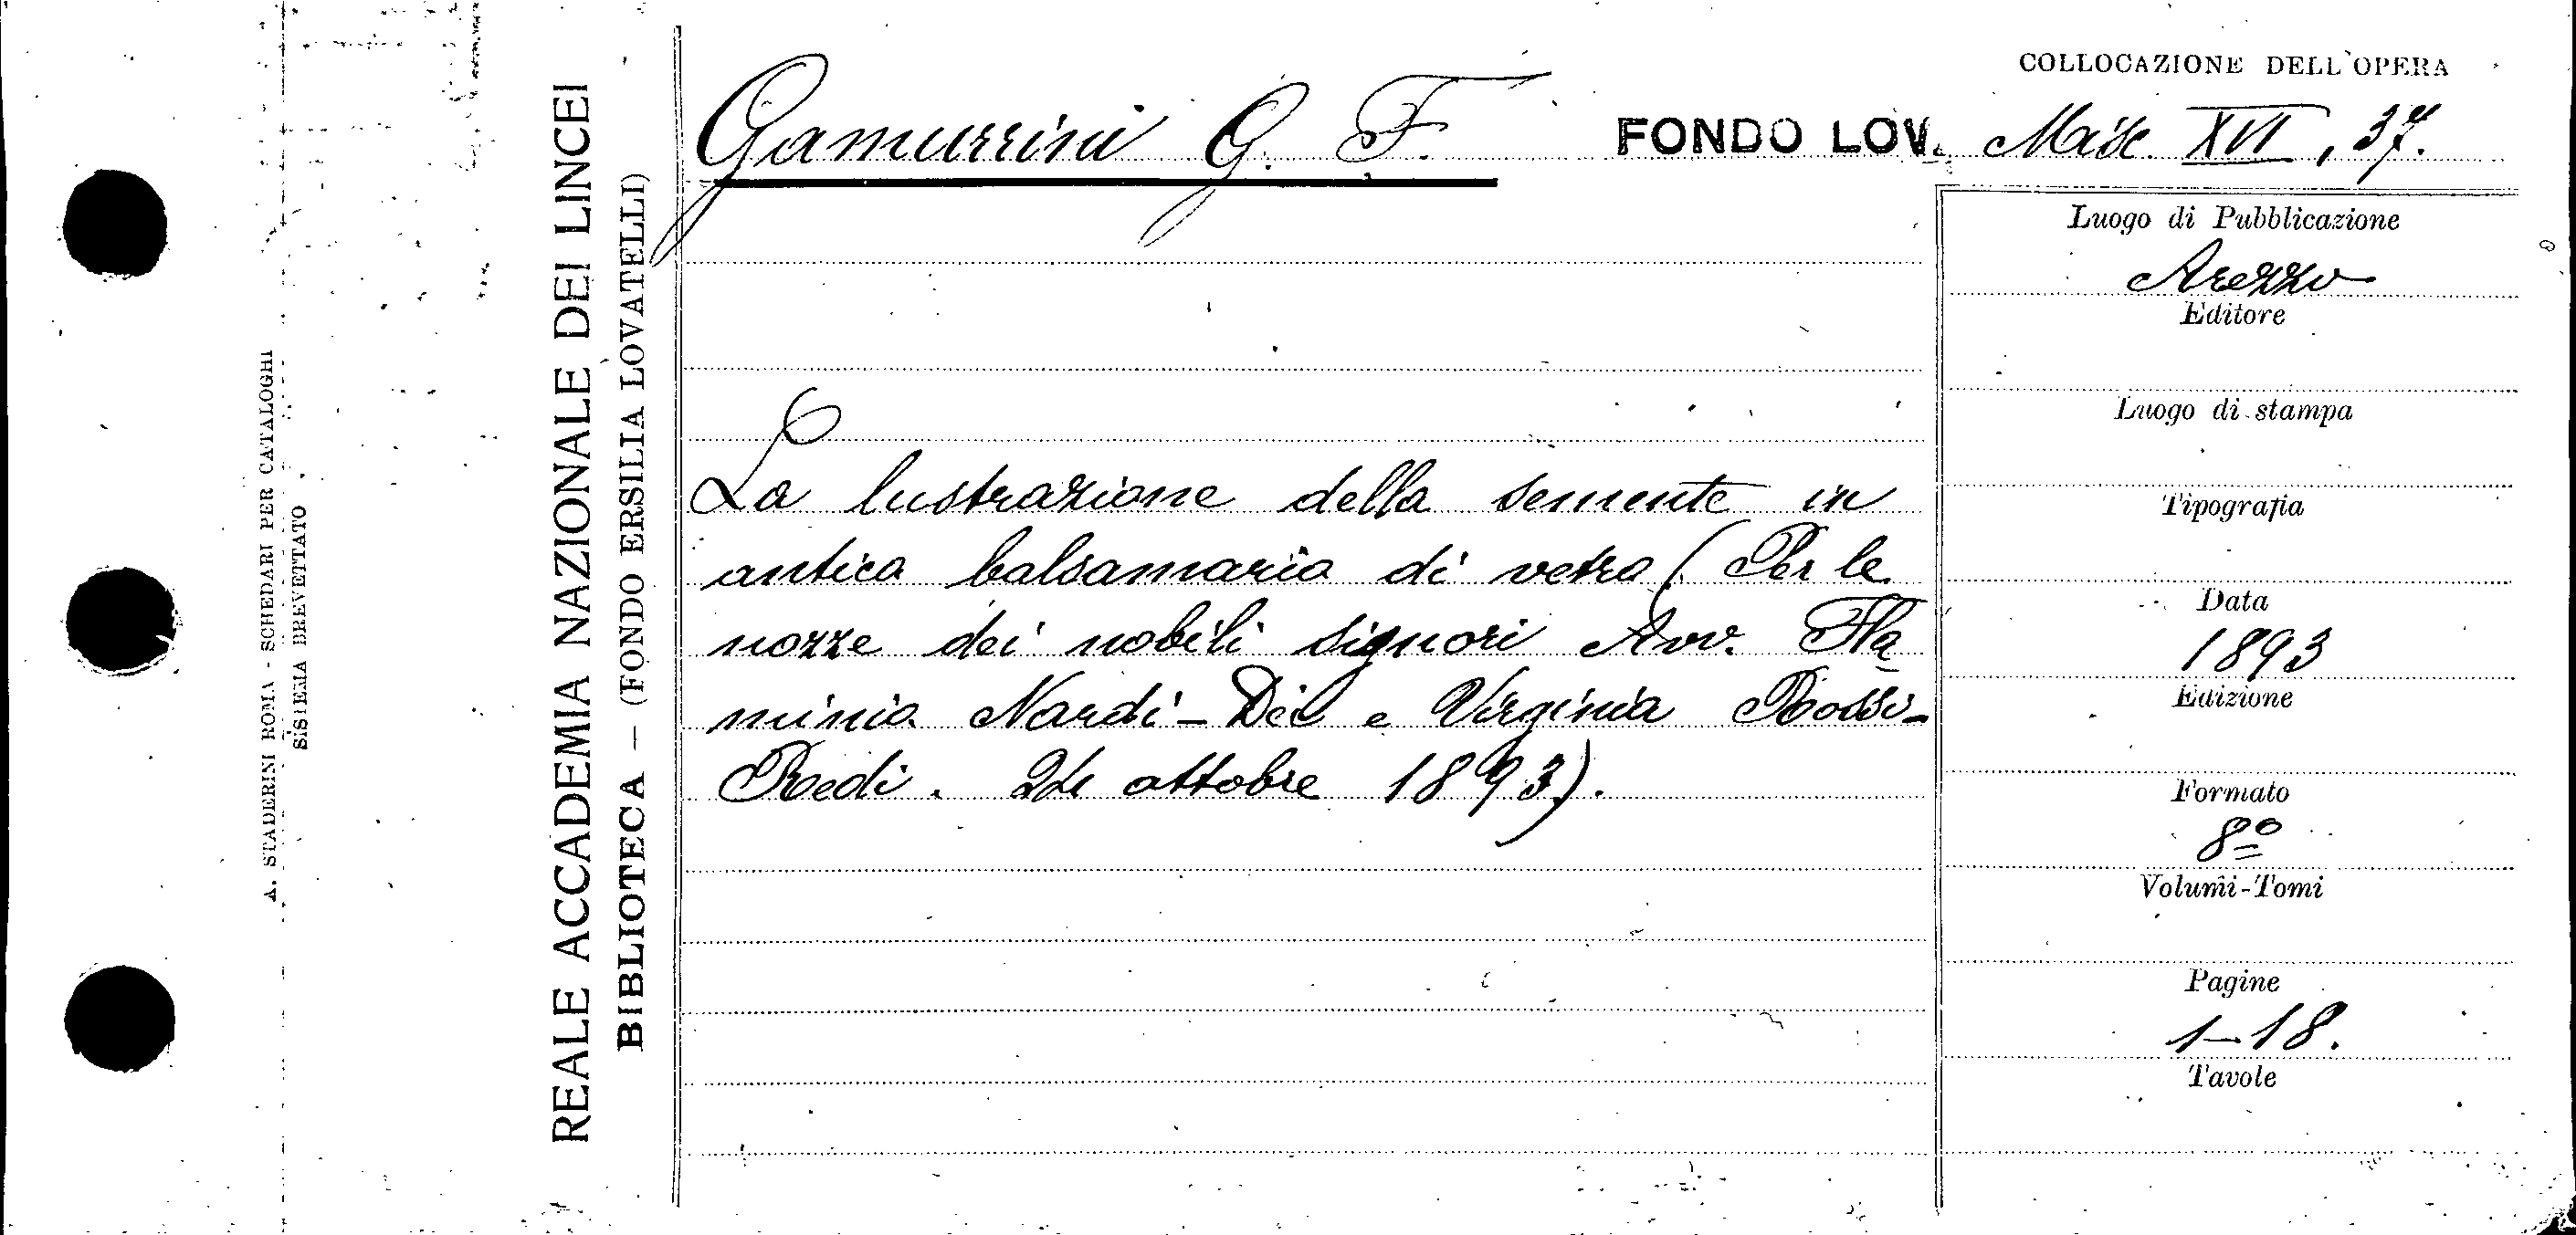 A. STADERINI ROMA - SCHEDARI PER CATALOGHI
SISTEMA BREVETTATO
REALE ACCADEMIA NAZIONALE DEI LINCEI
BIBLIOTECA — (FONDO ERSILIA LOVATELLI)
Gamurrini G. F.
COLLOCAZIONE DELL'OPERA
FONDO LOV. Misc. XVI, 37.
La lustrazione della semente in
antica balsamaria di vetro (Per le
nozze dei nobili signori Avv. Fla
minio Nardi-Dei e Virginia Rossi-
Redi. 24 ottobre 1893).
Luogo di Pubblicazione
Arezzo
Editore
Luogo di stampa
Tipografia
Data
1893
Edizione
Formato
8º
Volumi-Tomi
Pagine
1-18.
Tavole